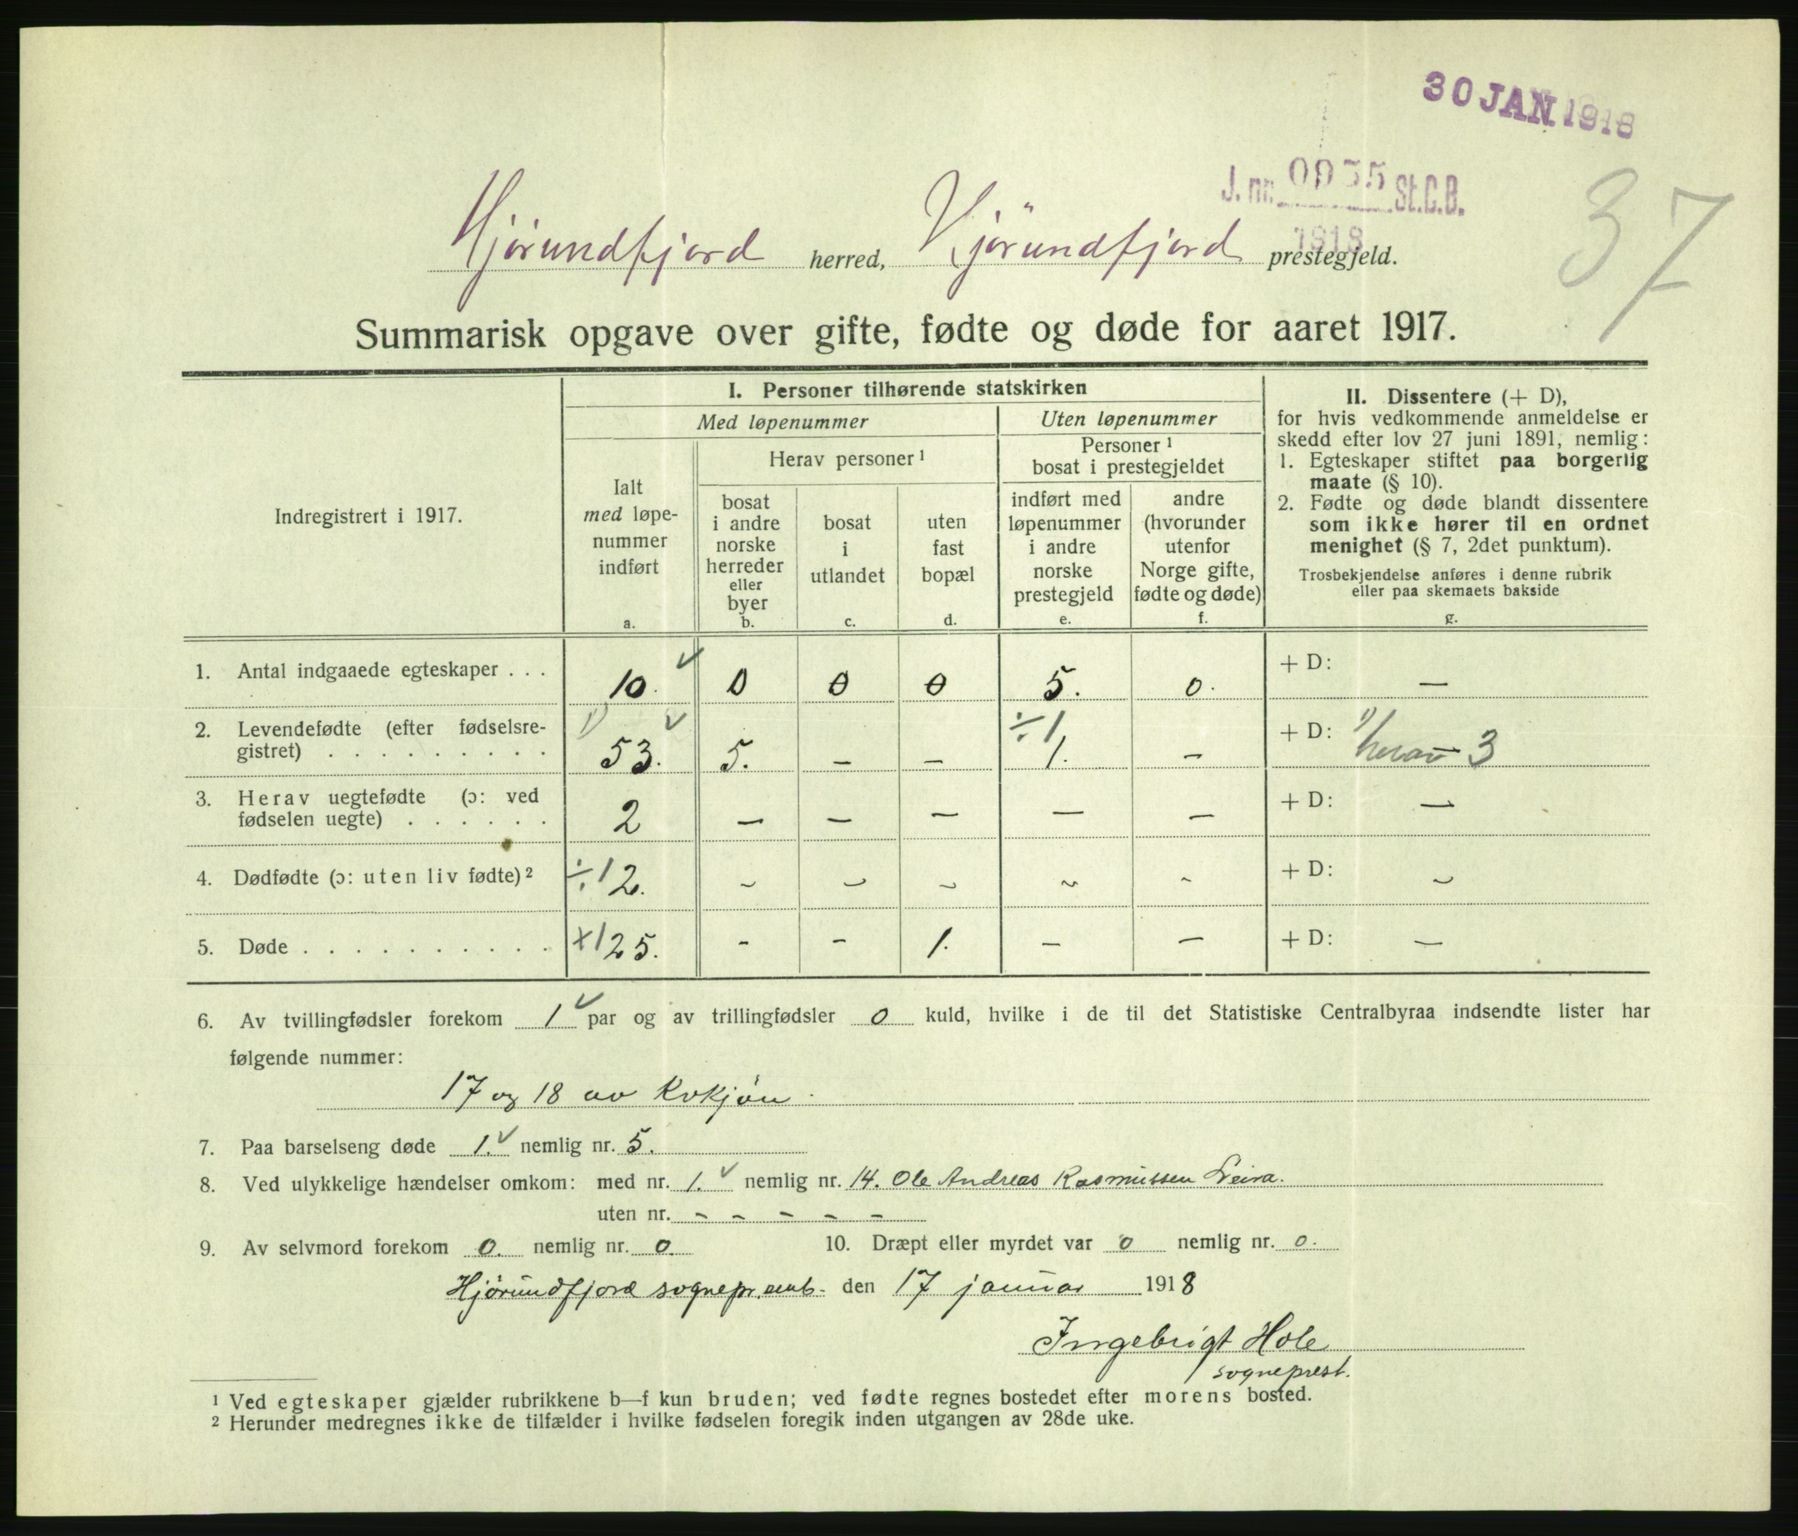 30 JAN. 1918
J. nr. 0955 St.C.B.
1918
37
Hjørundfjord herred, Hjörundfjord prestegjeld.
Summarisk opgave over gifte, fødte og døde for aaret 1917.
Indregistrert i 1917.
I. Personer tilhørende statskirken
Med løpenummer
Uten løpenummer
Herav personer ¹
Personer ¹
bosat i prestegjeldet
Ialt
med løpe-
nummer
indført
a.
bosat
i andre
norske
herreder
eller
byer
b.
bosat
i
utlandet
c.
uten
fast
bopæl
d.
indført med
løpenummer
i andre
norske
prestegjeld
e.
andre
(hvorunder
utenfor
Norge gifte,
fødte og døde)
f.
II. Dissentere (+ D),
for hvis vedkommende anmeldelse er
skedd efter lov 27 juni 1891, nemlig:
1. Egteskaper stiftet paa borgerlig
maate (§ 10).
2. Fødte og døde blandt dissentere
som ikke hører til en ordnet
menighet (§ 7, 2det punktum).
Trosbekjendelse anføres i denne rubrik
eller paa skemaets bakside
g.
1. Antal indgaaede egteskaper . . . 10. ✓ 0 0 0 5. 0. + D: —
2. Levendefødte (efter fødselsre-
gistret) . . . . . . . . . 1) 53. ✓ 5. — — ÷1 1. — + D: 1) herav 3
3. Herav uegtefødte (ɔ: ved
fødselen uegte) . . . . . . 2 — — — — — + D: —
4. Dødfødte (ɔ: uten liv fødte) ² ÷1 2. – – – – – + D: –
5. Døde . . . . . . . . . . +1 25. - - 1. — — + D: —
6. Av tvillingfødsler forekom 1 ✓ par og av trillingfødsler 0 kuld, hvilke i de til det Statistiske Centralbyraa indsendte lister har
følgende nummer:
17 og 18 av Kvkjøn.
7. Paa barselseng døde 1. ✓ nemlig nr. 5.
8. Ved ulykkelige hændelser omkom: med nr. 1. ✓ nemlig nr. 14. Ole Andreas Rasmussen Leira.
uten nr. – – – – –
9. Av selvmord forekom 0. nemlig nr. 0. 10. Dræpt eller myrdet var 0 nemlig nr. 0.
Hjørundfjord sognepr.emb. den 17 januar 1918
Ingebrigt Hole
sogneprest.
¹ Ved egteskaper gjælder rubrikkene b—f kun bruden; ved fødte regnes bostedet efter morens bosted.
² Herunder medregnes ikke de tilfælder i hvilke fødselen foregik inden utgangen av 28de uke.